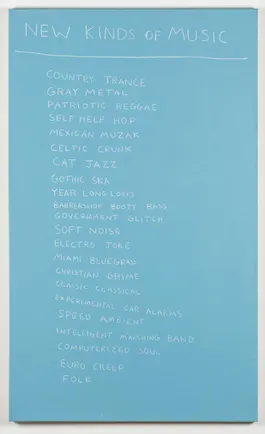 NEW KINDS OF MUSIC
COUNTRY TRANCE
GRAY METAL
PATRIOTIC REGGAE
SELF HELP HOP
MEXICAN MUZAK
CELTIC CRUNK
CAT JAZZ
GOTHIC SKA
YEAR LONG LOOPS
BARBERSHOP BOOTY BASS
GOVERNMENT GLITCH
SOFT NOISE
ELECTRO JOKE
MIAMI BLUEGRASS
CHRISTIAN GRIME
CLASSIC CLASSICAL
EXPERIMENTAL CAR ALARMS
SPEED AMBIENT
INTELLIGENT MARCHING BAND
COMPUTERIZED SOUL
EURO CREEP
FOLK